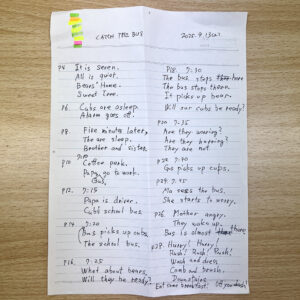 CATCH THE BUS
2025.9.13(土)
P4 It is seven.
All is quiet.
Bears' Home.
Sweet Love.
P6 Cubs are asleep.
Alarm goes off.
P8. Five minutes later,
The are sleep.
Brother and sister
7:10
P10 Coffee perk.
Papa go to work.
P12. 7:15
Papa is driver.
Cubs school bus
P14 7:20
Bus picks up cubs
The school bus.
P16. 7:25
What about bears,
Will they be ready?
P18. 7:30
The bus stops here
The bus stops there.
It picks up bear.
Will our cubs be ready?
P20 7:35
Are they waving?
Are they hurrying?
They are not
7:40
Gus picks up cups.
7:45
Ma sees the bus.
She starts to worry.
P26. Mother angry.
They wake up.
Bus is almost here.
P28. Hurry! Hurry!
Rush! Rush! Rush!
Wash and dress.
Comb and brush.
Downstairs
Eat some breakfast!